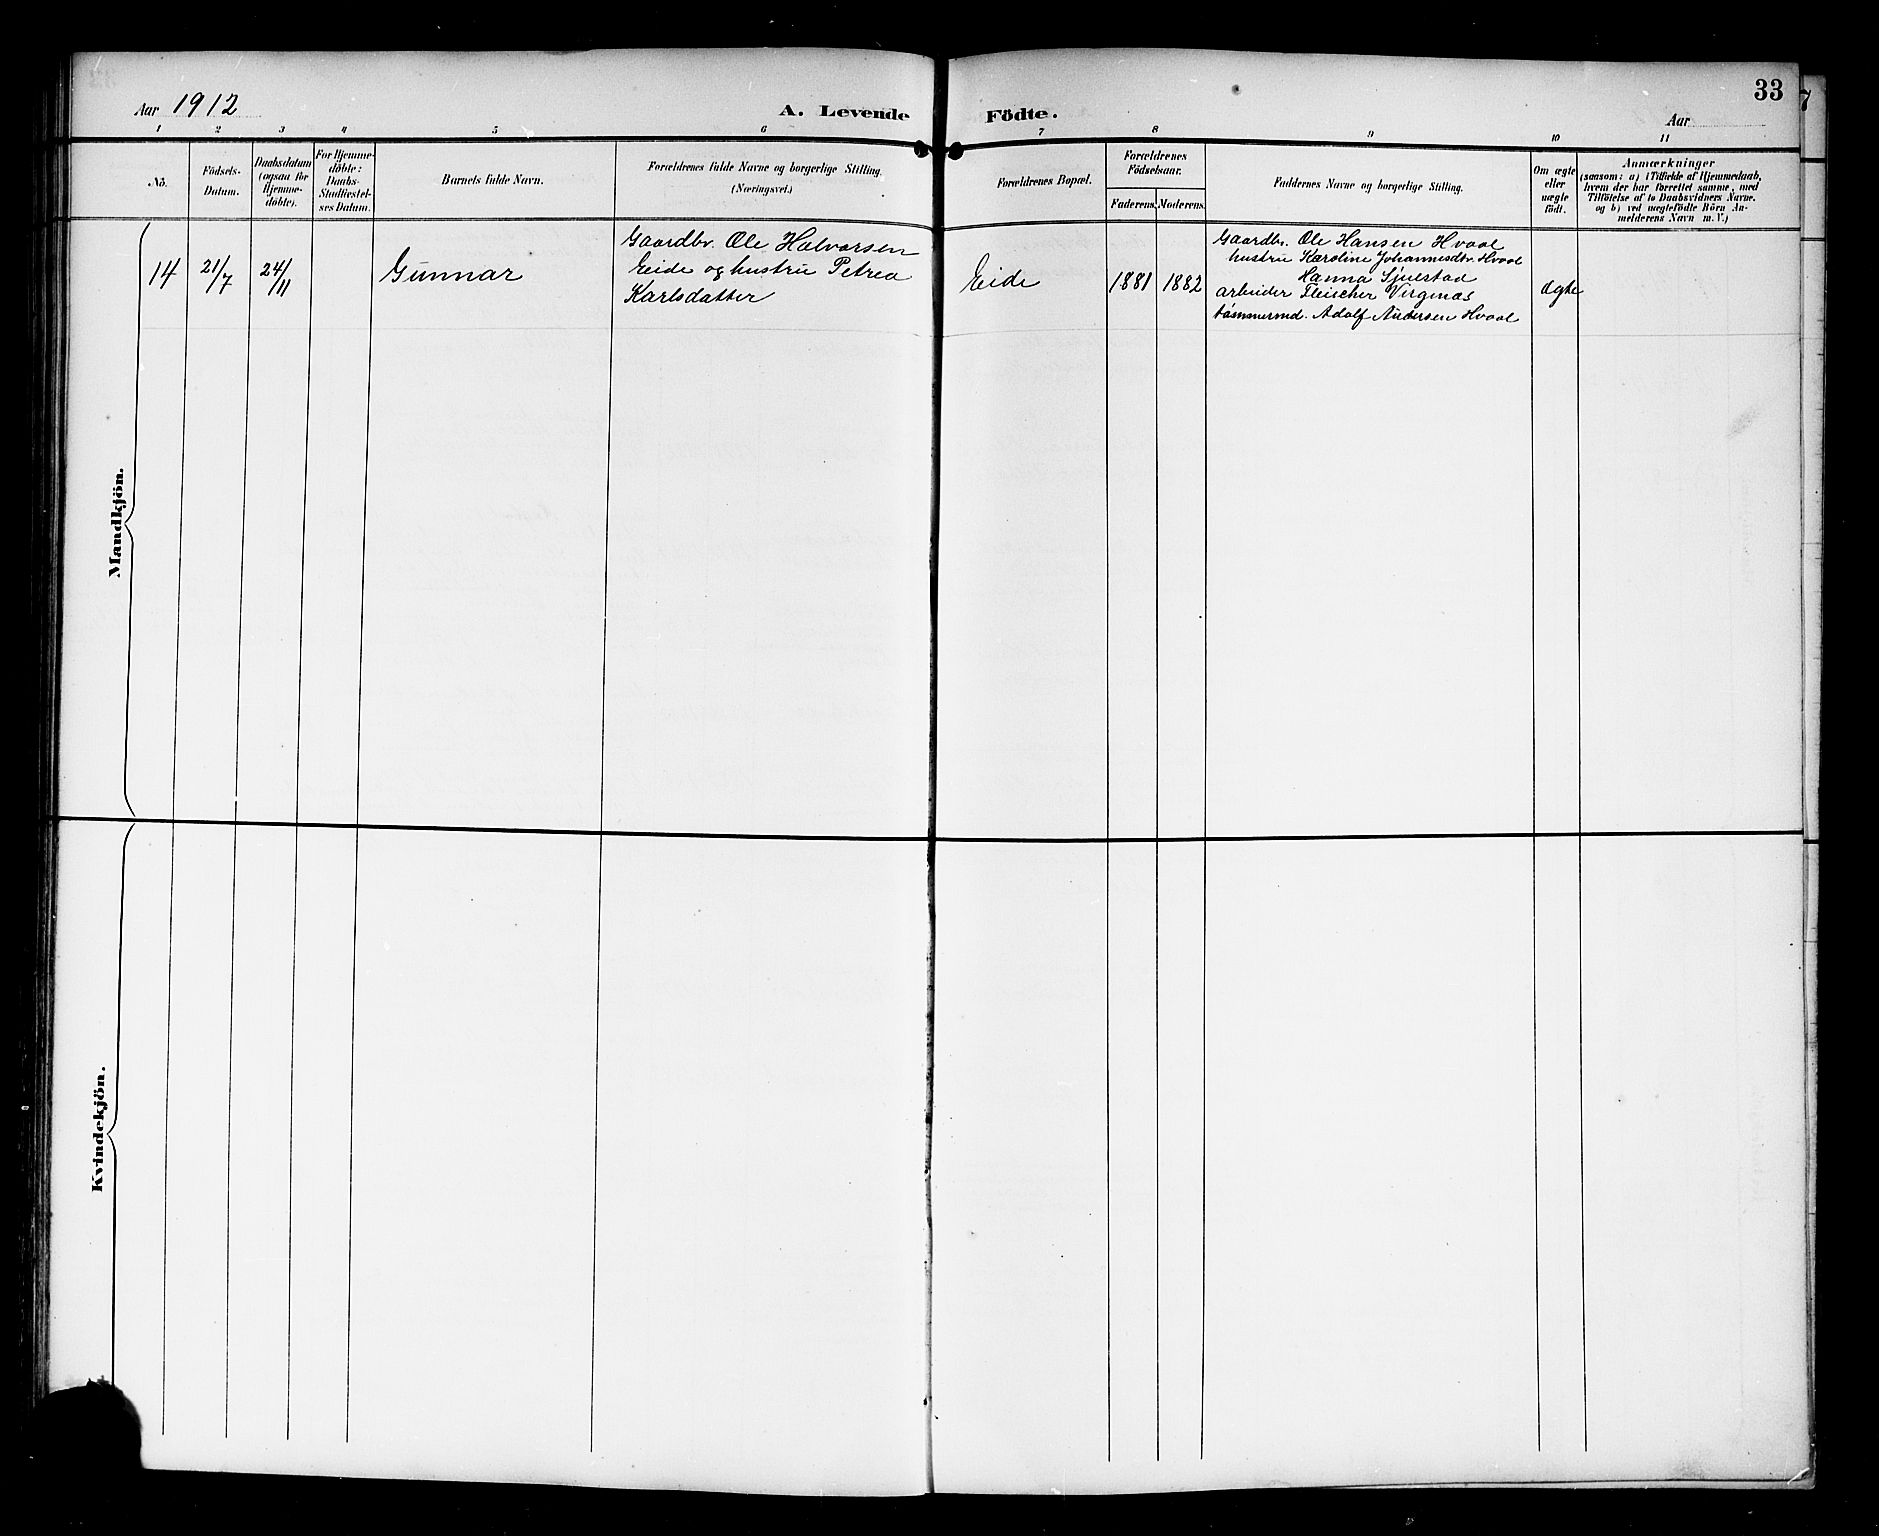 Aar 1912
A. Levende Födte.
33
Aar
1 2 3 4 5 6 7 8 9 10 11
No.
Födsels-
Datum.
Daabsdatum
(ogsaa for
Hjemme-
döbte).
For Hjemme-
döbte:
Daabs-
Stadfæstel-
ses Datum.
Barnets fulde Navn.
Forældrenes fulde Navne og borgerlige Stilling.
(Næringsvei.)
Forældrenes Bopæl.
Forældrenes
Födselsaar.
Faderens.
Moderens.
Faddernes Navne og borgerlige Stilling.
Om ægte
eller
uægte
födt.
Anmærkninger
(saasom: a) i Tilfælde af Hjemmedaab,
hvem der har forrettet samme, med
Tilföielse af to Daabsvidners Navne.
og b) ved uægtefödte Börn An-
melderens Navn m. V.)
Mandkjön.
14
21/7
24/11
Gunnar
Gaardbr. Ole Halvorsen
Eide og hustru Petrea
Karlsdatter
Eide
1881
1882
Gaardbr. Ole Hansen Hvaal
hustru Karoline Johannesdtr. Hvaal
Hanna
arbeider Fleischer
tømmermd. Adolf Andersen Hvaal
Ægte
Kvindekjön.
7